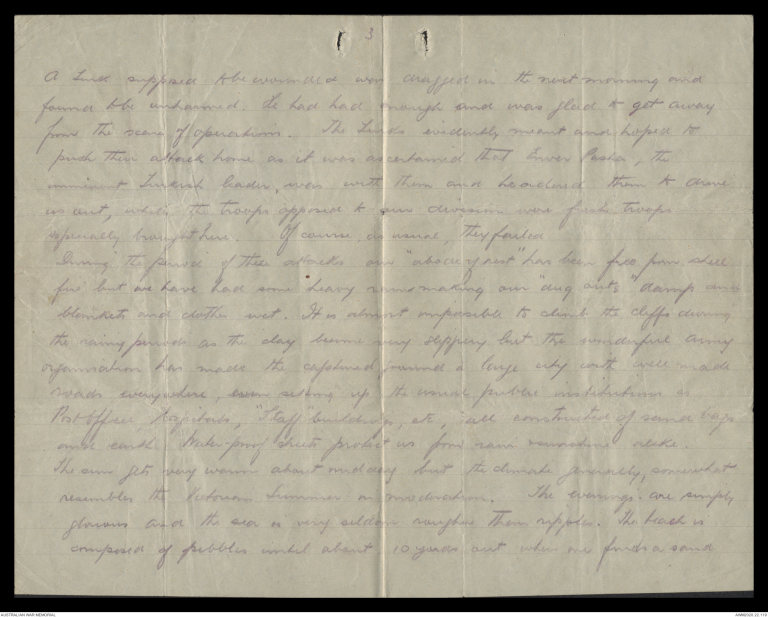 3
A Turk supposed to be wounded was dragged in the next morning and
found to be unharmed. He had had enough and was glad to get away
from the scene of operations. The Turks evidently meant and hoped to
push their attack home as it was ascertained that Enver Pasha, the
imminent Turkish leader, was with them and he ordered them to drive
us out, while the troops opposed to our division were fresh troops
especially brought here. Of course, as usual, they failed
During the period of these attacks our "abode of rest" has been free from shell
fire but we have had some heavy rains making our "dug outs" damp and
blankets and clothes wet. It is almost impossible to climb the cliffs during
the rainy periods as the clay become very slippery but the wonderful army
organisation has made the captured ground a large city with well made
roads everywhere, even setting up the usual public institutions as
Post Office Hospitals, "Staff" buildings, etc, all constructed of sand bags
and earth. Water proof sheets protect us from rain & sunshine alike.
The sun gets very warm about midday but the climate generally, somewhat
resembles the Victorian Summer in moderation. The evenings are simply
glorious and the sea is very seldom rougher than ripples. The beach is
composed of pebbles until about 10 yards out when one finds a sand
AUSTRALIAN WAR MEMORIAL